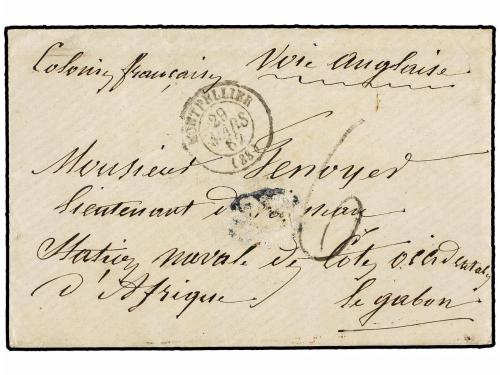 Colonies françaises Voie Anglaise
MONTPELLIER
29
MARS
(33)
Monsieur Jenoyer
lieutenant de vaisseau
Station navale des Côtes occidentales
d'Afrique
le gabon
6